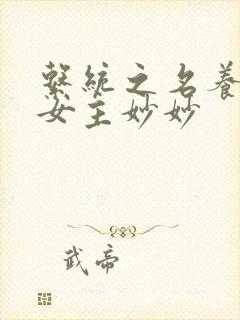 繫統之名養
女主妙妙
武帝